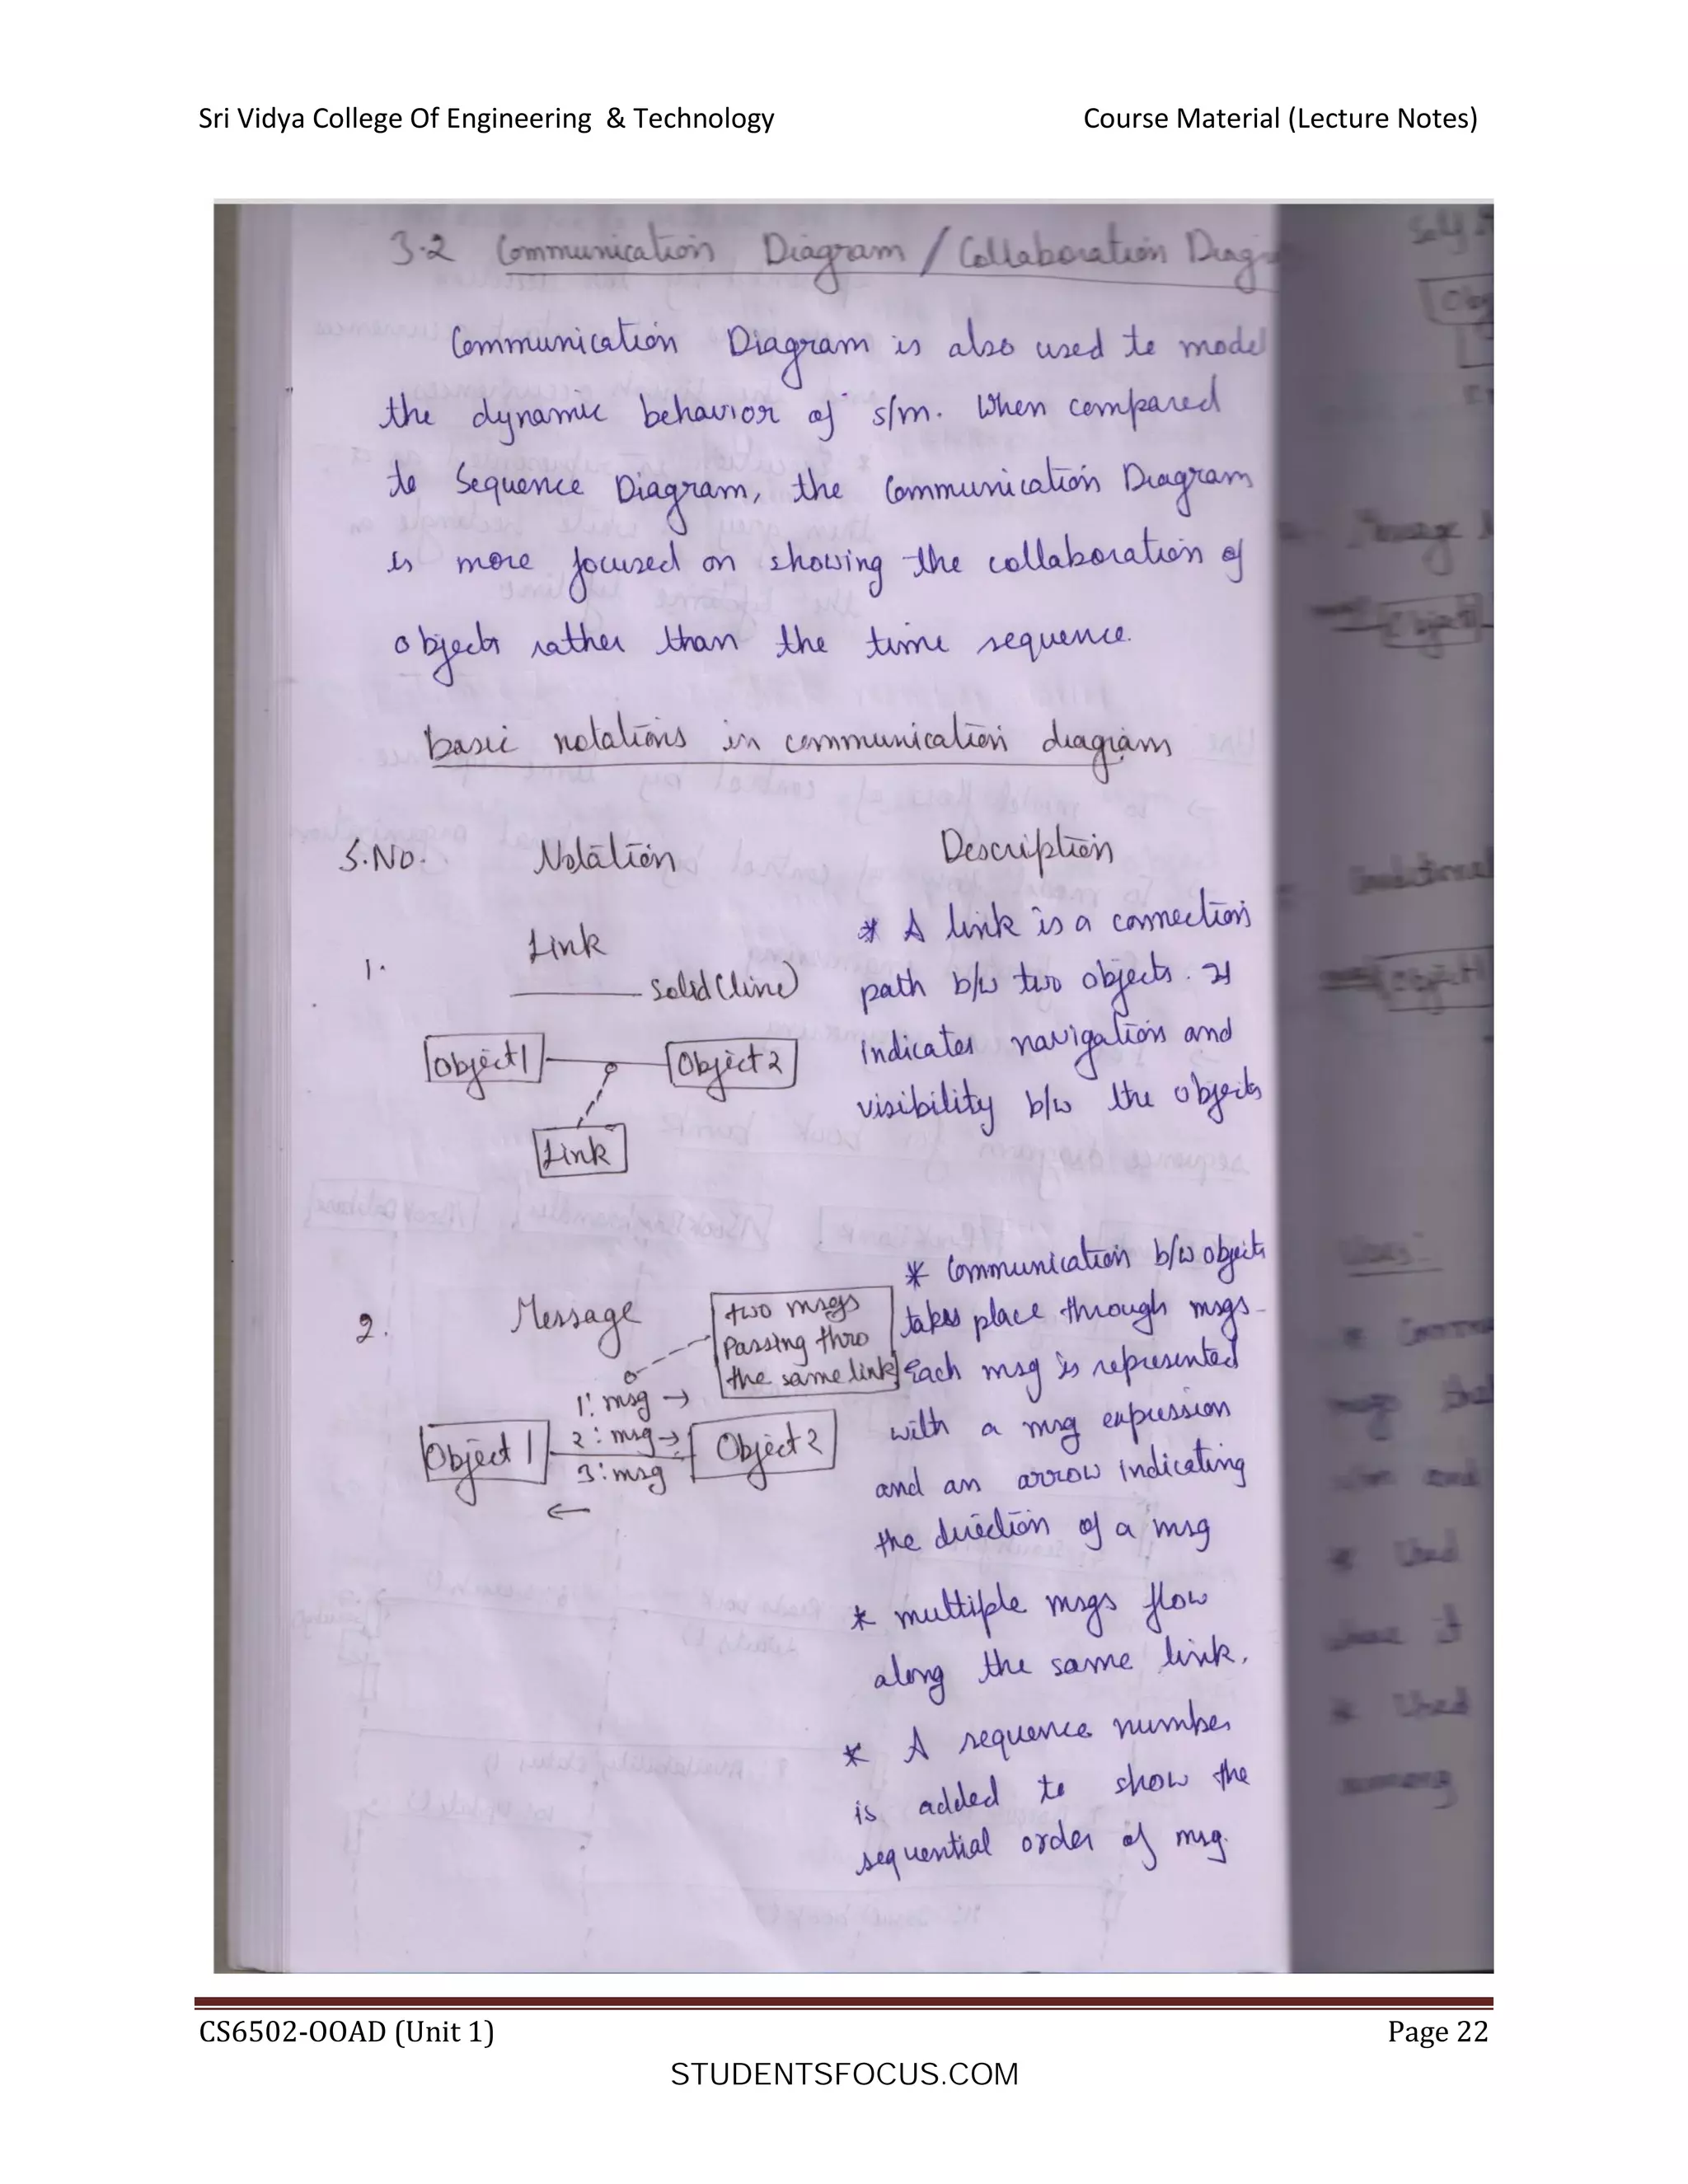 Sri Vidya College Of Engineering & Technology Course Material (Lecture Notes)
3.2 Communication Diagram / Collaboration Diag
Communication Diagram is also used to model
the dynamic behavior of s/m. When compared
to Sequence Diagram, the Communication Diagram
is more focused on showing the collaboration of
objects rather than the time sequence.
basic notations in communication diagram
S.No. Notation Description
1.
Link
solid (line)
Object1 Object2
Link
* A link is a connection
path b/w two objects. It
indicates navigation and
visibility b/w the objects
2.
Message
two msgs
passing thro
the same link
1: msg →
2: msg →
Object 1 Object 2
3: msg
←
* Communication b/w objects
takes place through msgs.
Each msg is represented
with a msg expression
and an arrow indicating
the direction of a msg
* multiple msgs flow
along the same link.
* A sequence number
is added to show the
sequential order of msg.
CS6502-OOAD (Unit 1) Page 22
STUDENTSFOCUS.COM